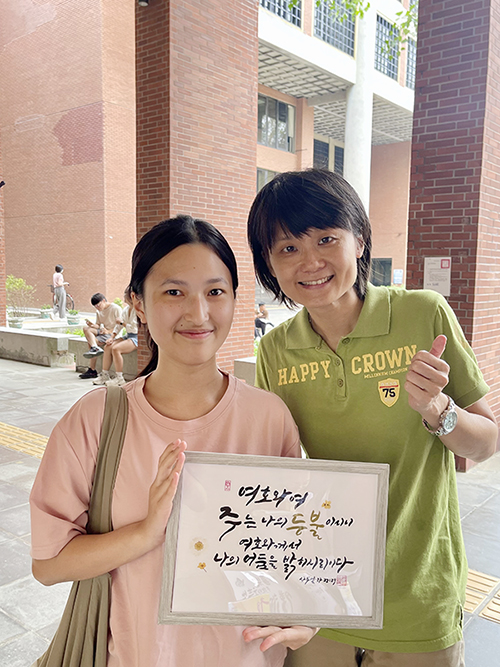 HAPPY CROWN
MILLENNIUM CHAMPION
75
여호와여
주는 나의 등불이시니
여호와께서
나의 어둠을 밝히시리이다